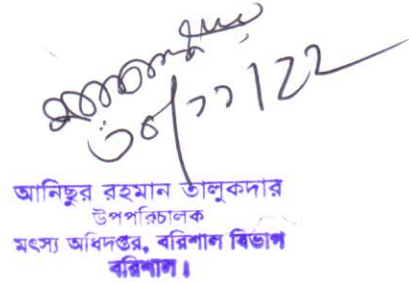 ৩০/১১/22
আনিছুর রহমান তালুকদার
উপপরিচালক
মৎস্য অধিদপ্তর, বরিশাল বিভাগ
বরিশাল।